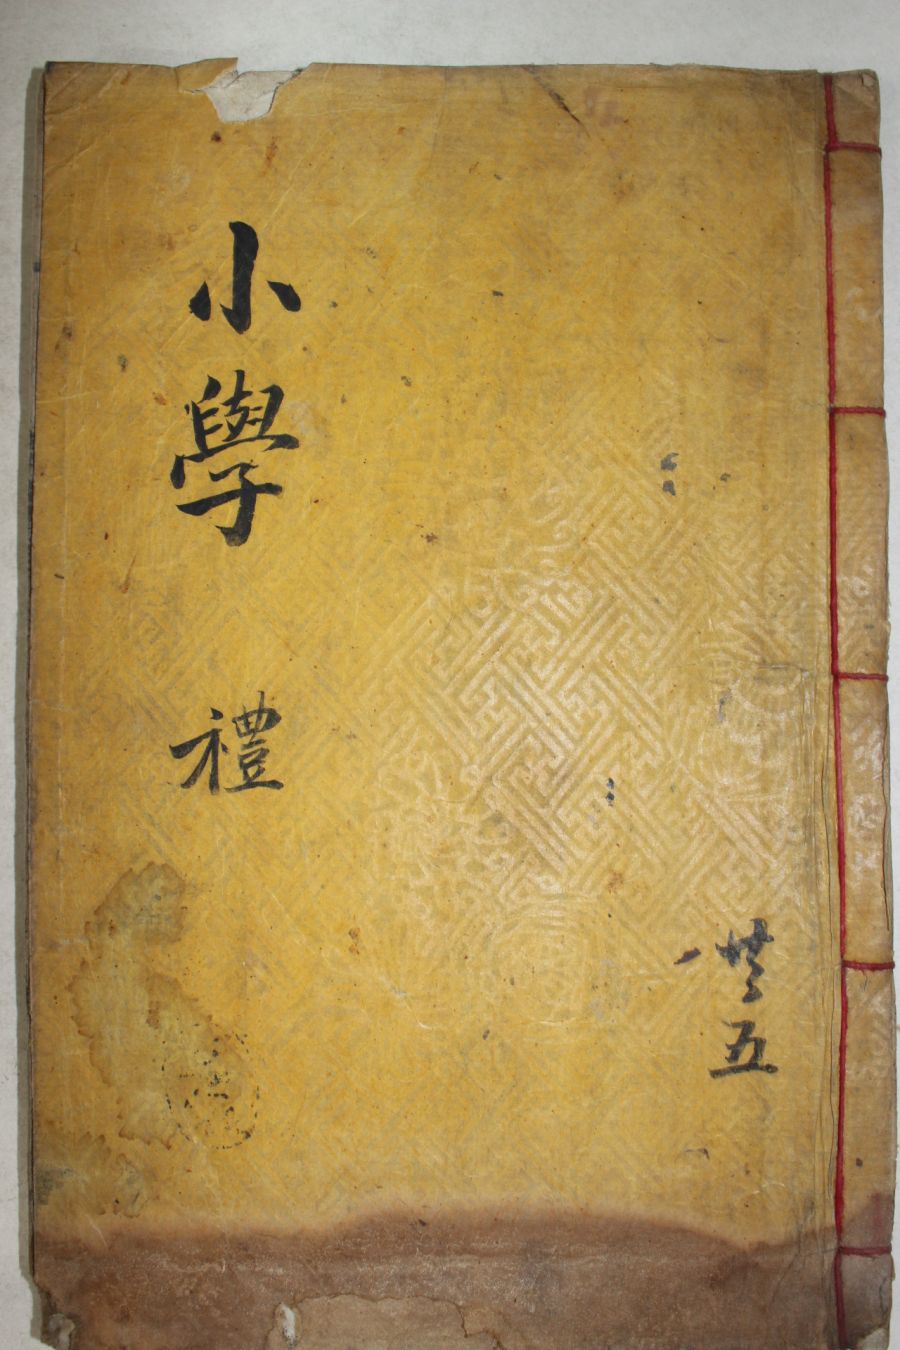 小學 禮
共五